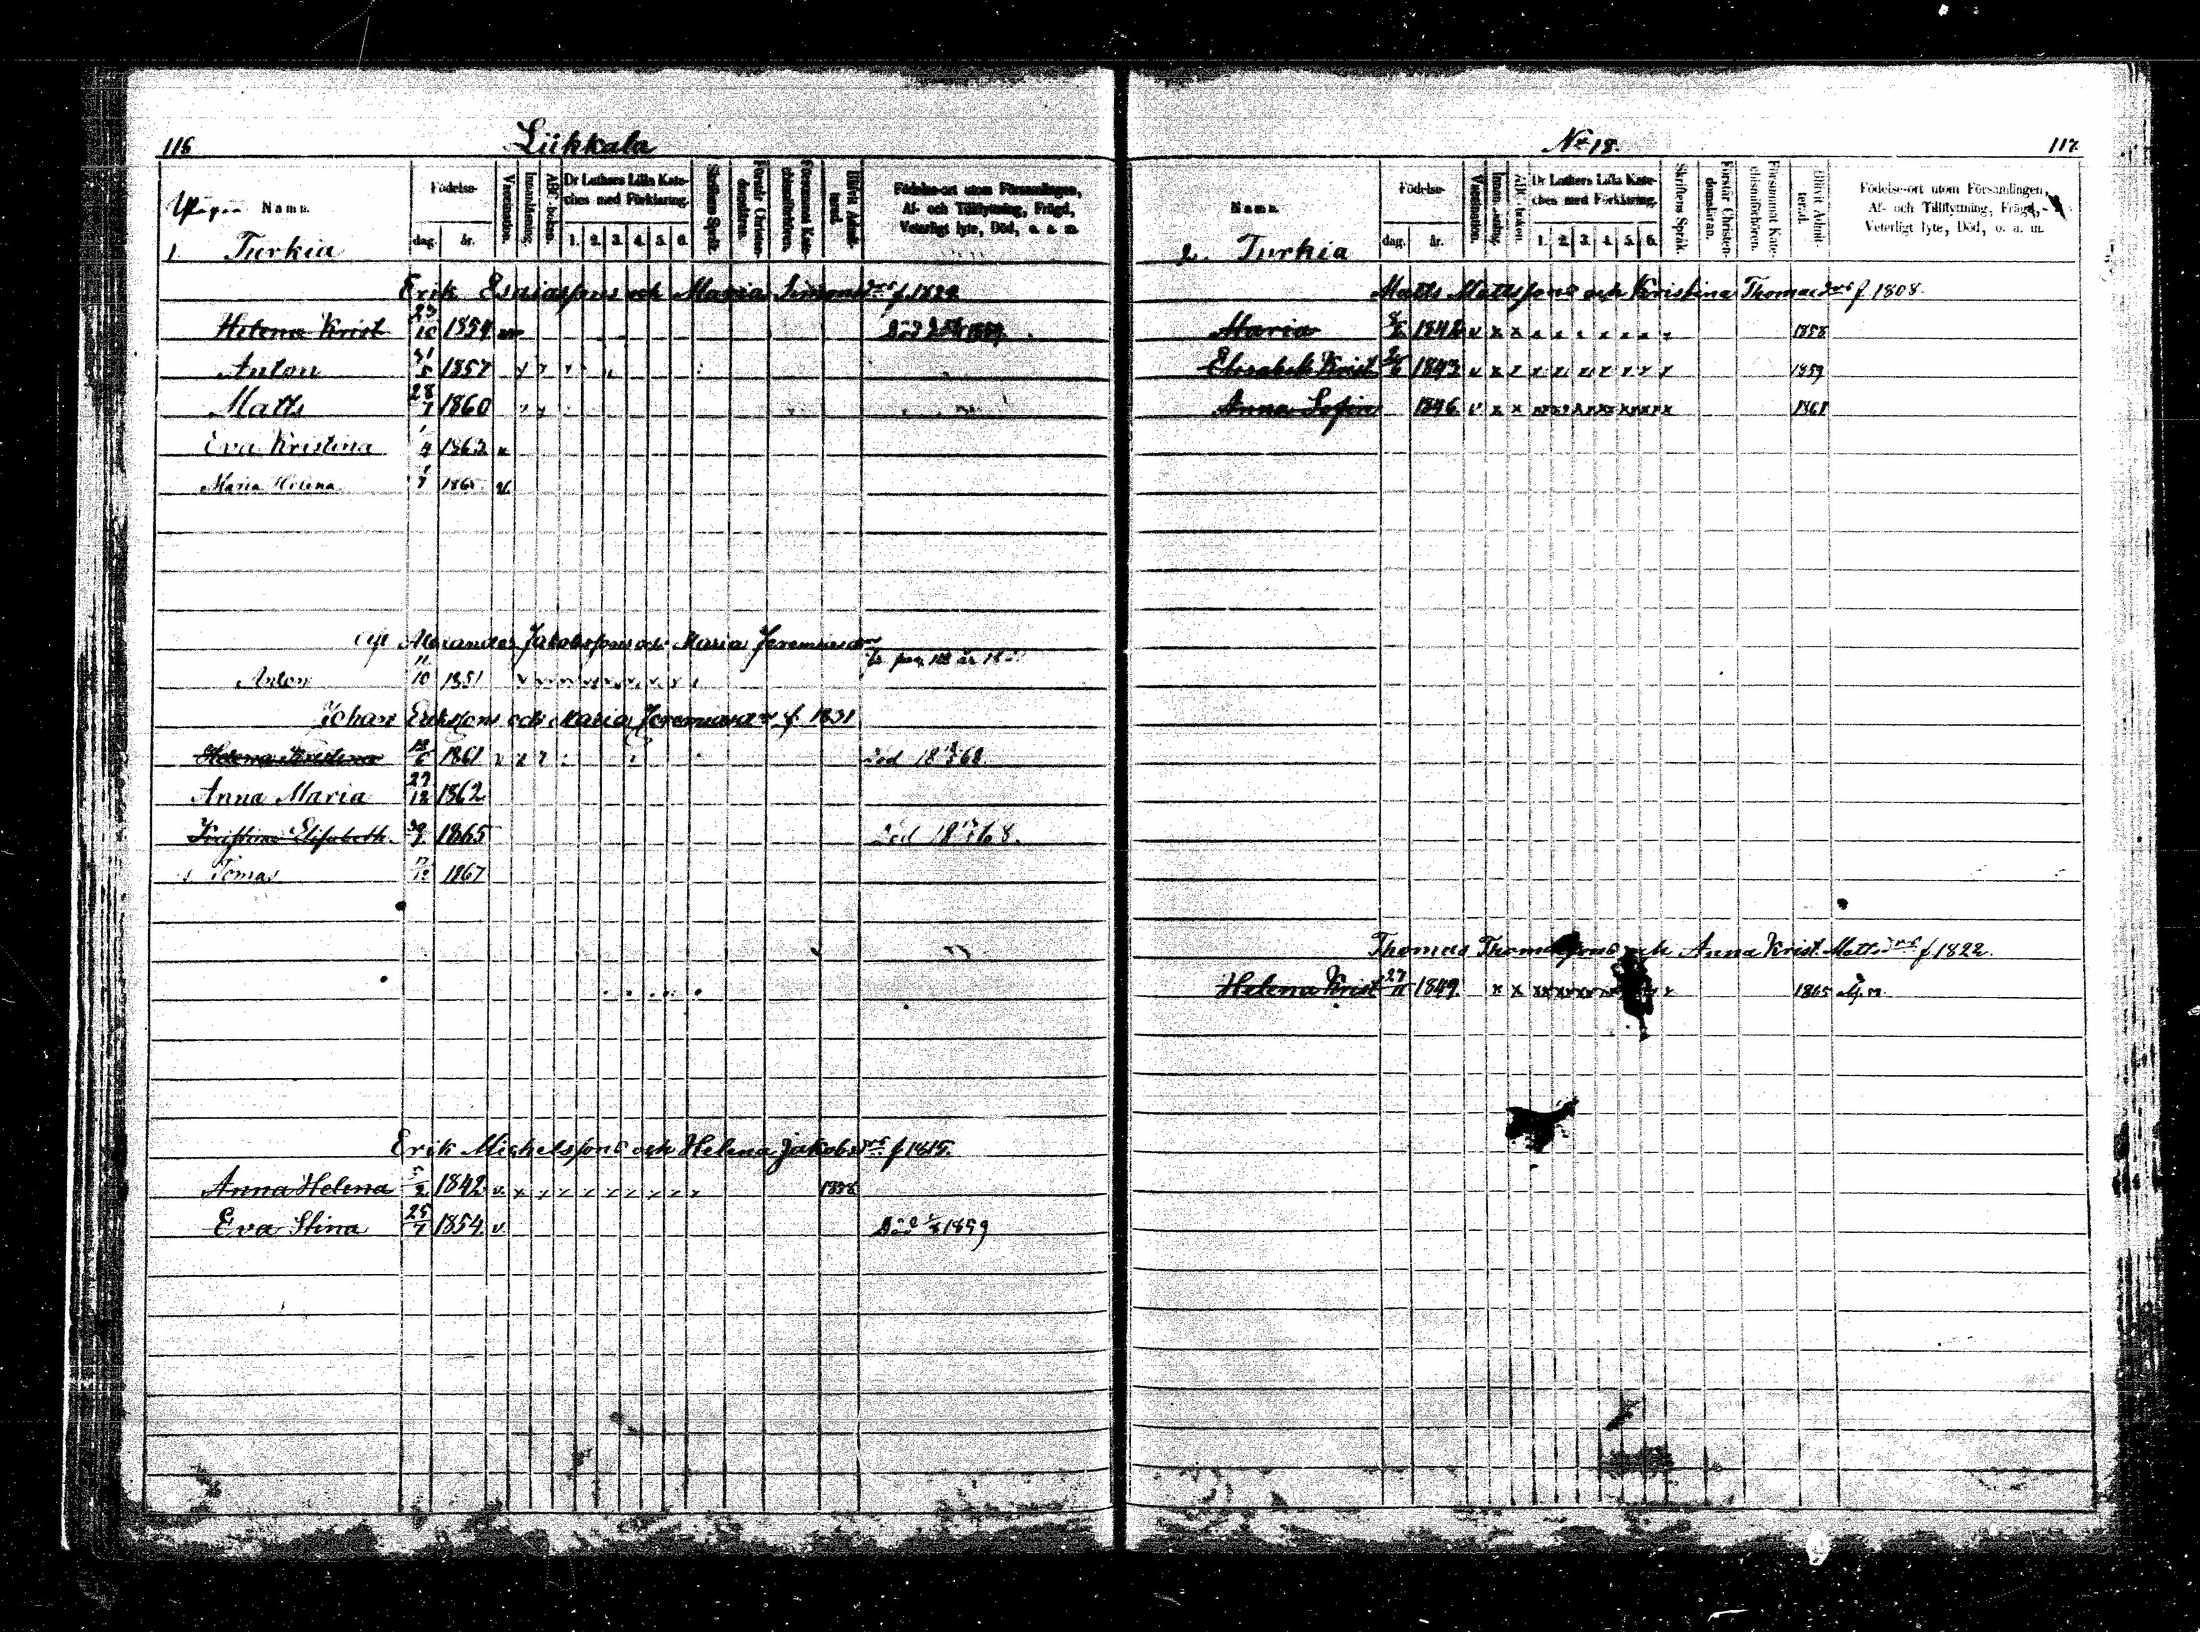 116
Liikkala
Namn.
Födelse-
dag.
år.
Vaccination.
Innanläsning.
ABC boken.
Dr Luthers Lilla Kate-
ches med Förklaring.
1. 2. 3. 4. 5. 6.
Skriftens Språk.
Förstår Christen-
domsläran.
Försummat Kate-
chismiförhören.
Blifvit Admit-
terad.
Födelse-ort utom Församlingen,
Af- och Tillflyttning, Frägd,
Veterligt lyte, Död, o. s. m.
1 Turkia
Erik Esaiassons och Maria Simonsdrs f.
Helena Krist 23/10 1854 Död
Anton 31/5 1857
Matts 28/7 1860
Eva Kristina 1/4 1862
Maria Helena 1/7 1865
Alexander Jakobssons och Maria Jeremiasdrs
Anton 11/10 1851
Johan Erikssons och Maria Jeremiasdrs f. 1831
Helena Kristina 12/6 1861 Död
Anna Maria 27/12 1862
Kristina Elisabeth 1865 Död
Tomas 1867
Erik Michelssons och Helena Jakobsdrs f 1815.
Anna Helena 5/2 1842 v x x x x x x x x x 1858
Eva Stina 25/7 1854 v Död 1859
No 18.
117
Namn.
Födelse-
dag.
år.
Vaccination.
Innanläsning.
ABC boken.
Dr Luthers Lilla Kate-
ches med Förklaring.
1. 2. 3. 4. 5. 6.
Skriftens Språk.
Förstår Christen-
domsläran.
Försummat Kate-
chismiförhören.
Blifvit Admit-
terad.
Födelse-ort utom Församlingen,
Af- och Tillflyttning, Frägd,
Veterligt lyte, Död, o. s. m.
2. Turkia
Matts Mattssons och Kristina Thomasdrs f 1808.
Maria 1842 v x x x x x x x x x 1858
Elisabeth Krist 1843 v x x x x x x x x x 1859
Anna Sofia 1846 v x x 1861
Thomas Thomassons och Anna Krist. Mattsdrs f 1822.
Helena Krist 27/11 1849 x x 1865